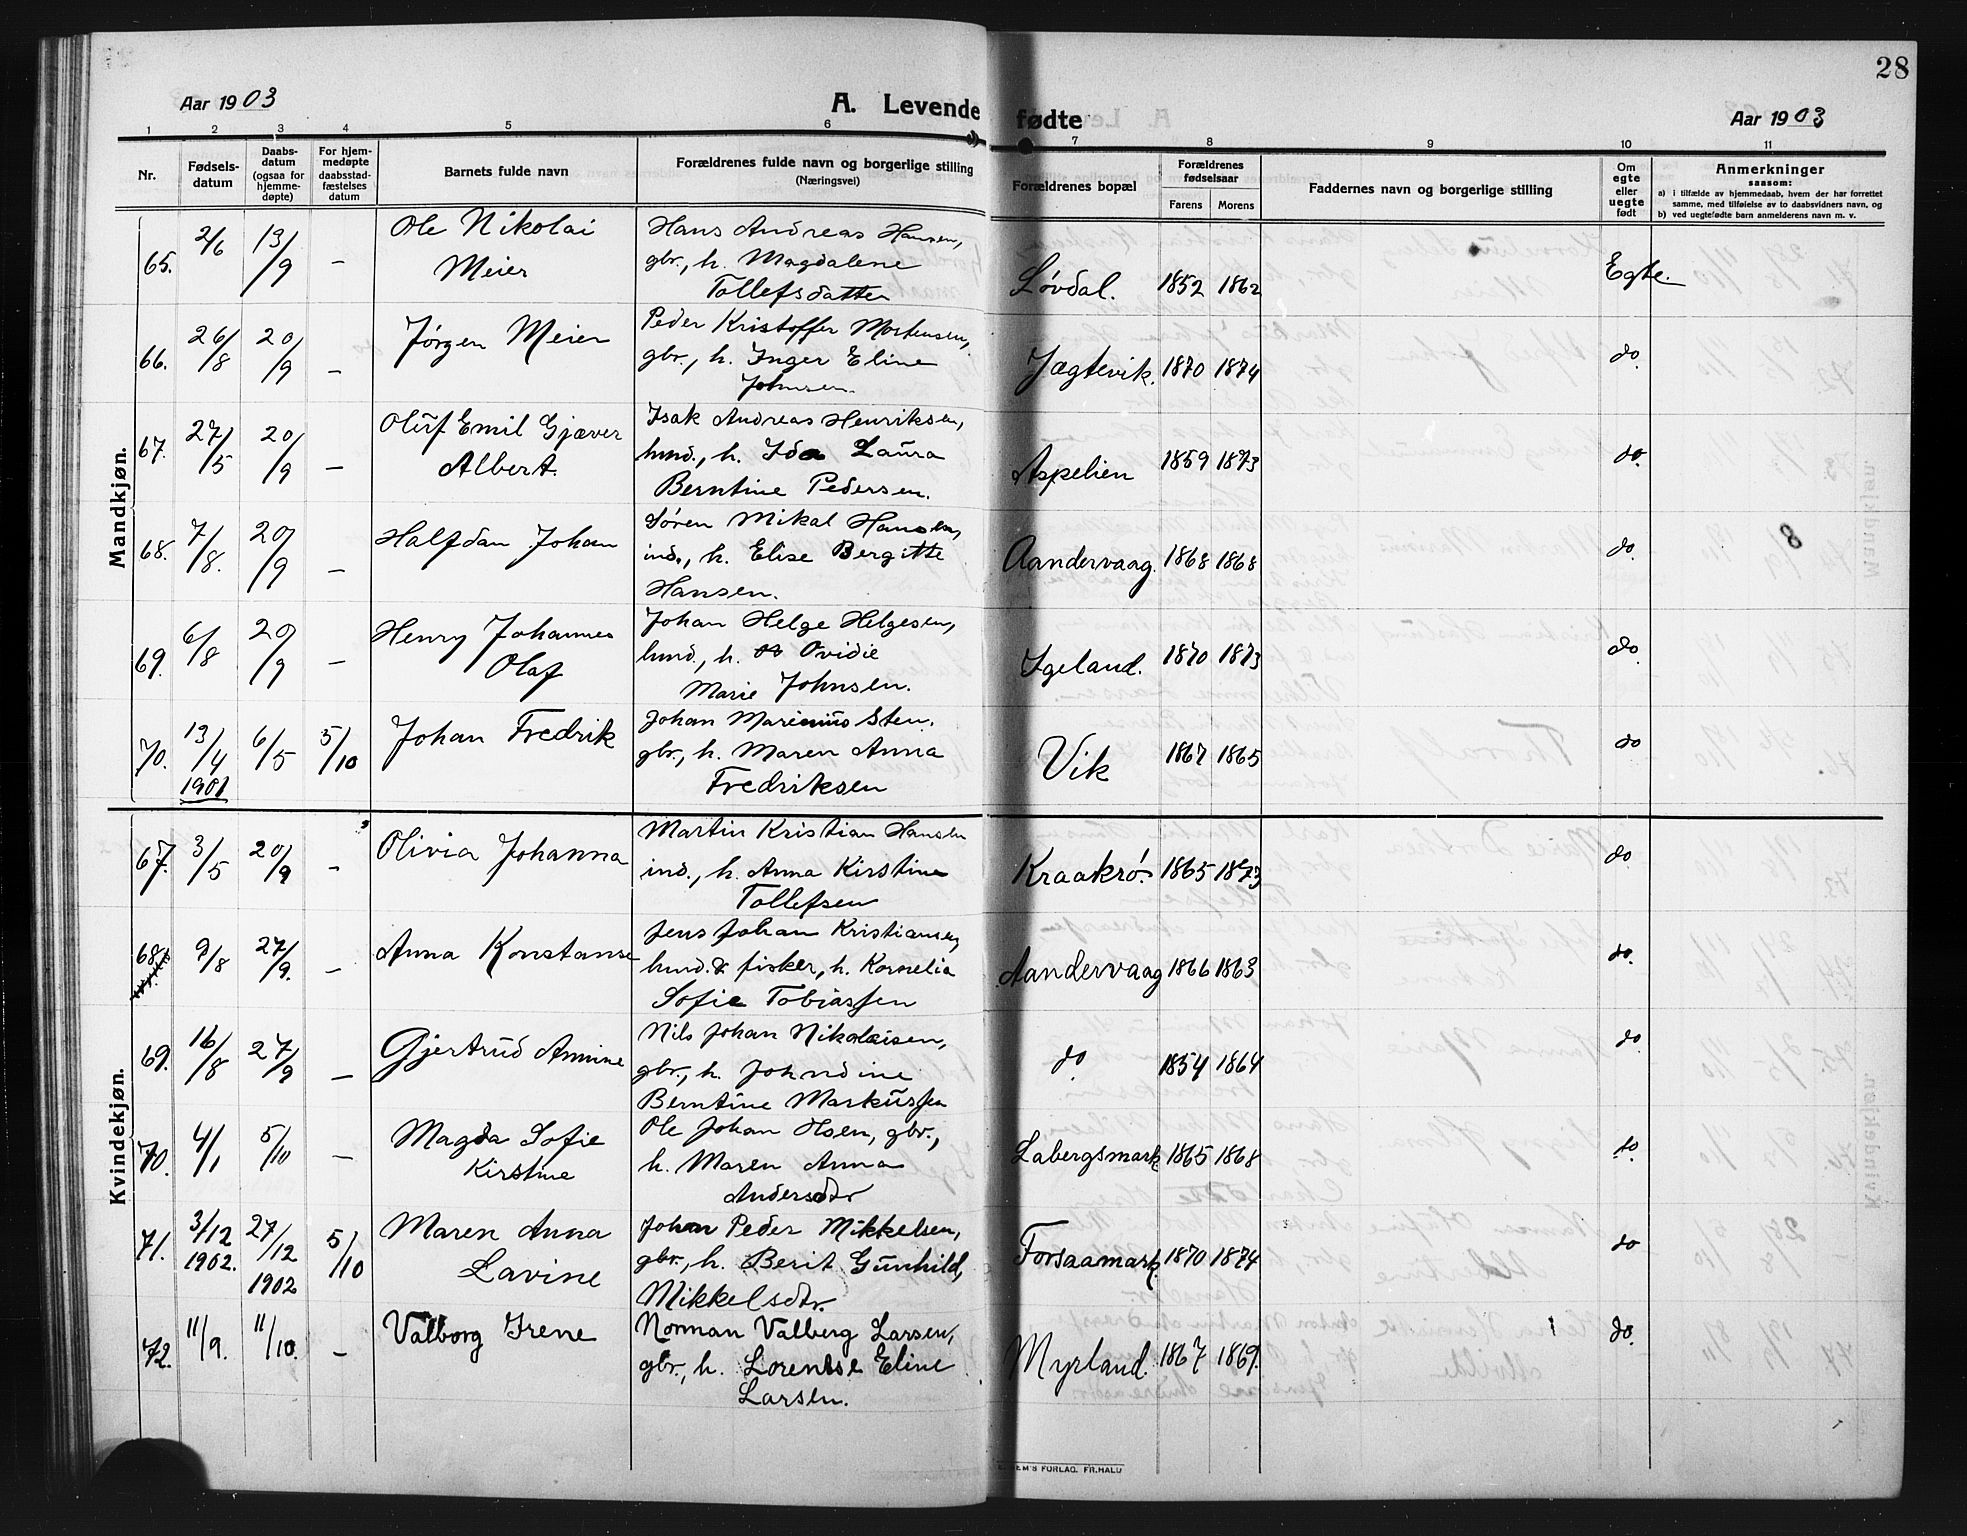 28
Aar 1903
A. Levende fødte
Aar 1903
1 2 3 4 5 6 7 8 9 10 11
Nr.
Fødsels-
datum
Daabs-
datum
(ogsaa for
hjemme-
døpte)
For hjem-
medøpte
daabsstad-
fæstelses
datum
Barnets fulde navn
Forældrenes fulde navn og borgerlige stilling
(Næringsvei)
Forældrenes bopæl
Forældrenes
fødselsaar
Farens Morens
Faddernes navn og borgerlige stilling
Om
egte
eller
uegte
født
Anmerkninger
saasom:
a) i tilfælde av hjemmedaab, hvem der har forrettet
samme, med tilføielse av to daabsvidners navn, og
b) ved uegtefødte barn anmelderens navn m. v.
Mandkjøn.
65. 2/6 13/9 – Ole Nikolai
Meier
Hans Andreas Hansen,
gbr., h. Magdalene
Tollefsdatter
Løvdal. 1852 1862 Egte.
66. 26/8 20/9 – Jørgen Meier
Peder Kristoffer Mortensen,
gbr., h. Inger Eline
Johnsen.
Jægtevik. 1870 1874 do.
67. 27/5 20/9 – Oluf Emil Gjæver
Albert.
Isak Andreas Henriksen,
hmd., h. Ida Laura
Berntine Pedersen.
Aspelien 1859 1873 do.
68. 7/8. 20/9 – Halfdan Johan
Søren Mikal Hansen,
ind., h. Elise Bergitte
Hansen.
Aandervaag. 1868 1868 do. 8
69. 6/8 20/9 – Henry Johannes
Olaf
Johan Helge Helgesen,
hmd., h. Ovidie
Marie Johnsen.
Igeland. 1870 1873 do.
70. 13/4 1901 6/5 5/10 Johan Fredrik
Johan Marinius Sten.
gbr., h. Maren Anna
Fredriksen
Vik 1867 1865 do
Kvindekjøn.
67. 3/5 20/9 – Olivia Johanna
Martin Kristian Hansen
ind., h. Anna Kirstine
Tollefsen
Kraakrø. 1865 1873 do
68. 9/8 27/9. – Anna Konstanse
Jens Johan Kristiansen,
hmd. & fisker, h. Kornelia
Sofie Tobiassen
Aandervaag 1866 1863 do.
69. 16/8 27/9 – Gjertrud Annine
Nils Johan Nikolaisen,
gbr., h. Johndine
Berntine Markussen
do. 1854 1864 do.
70. 4/1 5/10 – Magda Sofie
Kirstine
Ole Johan Hsen, gbr.,
h. Maren Anna
Andersdtr
Labergsmark 1865 1868 do.
71. 3/12 1902. 27/12 1902 5/10 Maren Anna
Lavine
Johan Peder Mikkelsen,
gbr., h. Berit Gunhild,
Mikkelsdtr.
Forsaamark. 1870 1874 do
72. 11/9. 11/10. – Valborg Irene
Norman Valberg Larsen,
gbr., h. Lorentse Eline
Larsen.
Myrland. 1867 1869. do.
FORLAG. FR.HALD